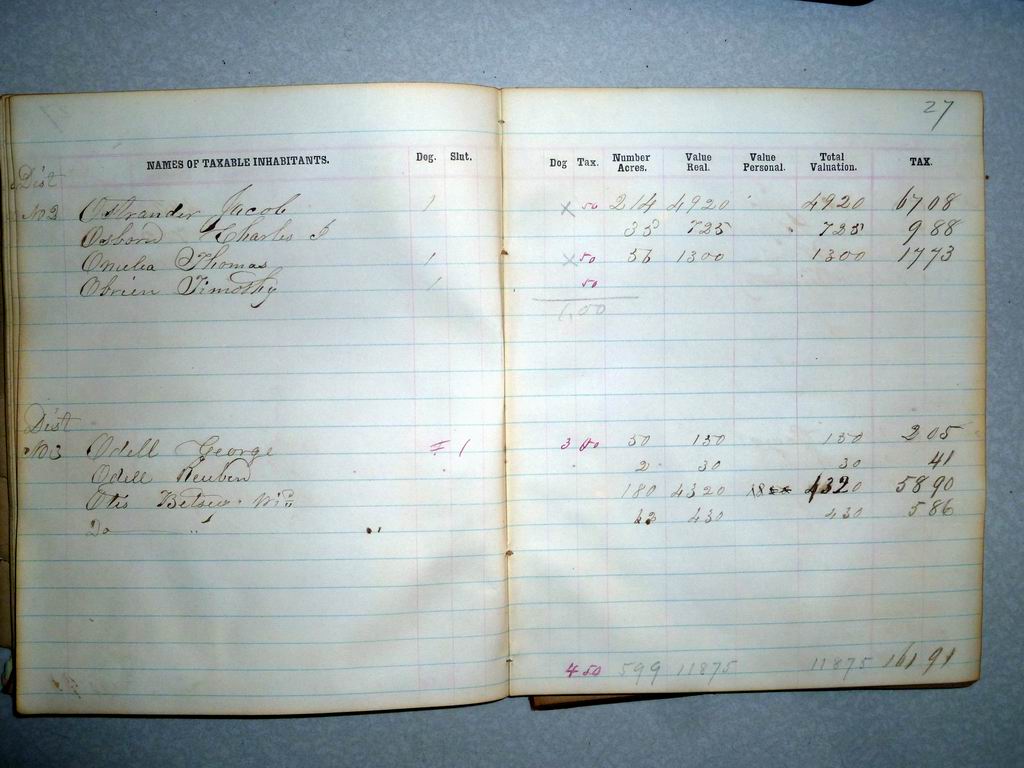 27
NAMES OF TAXABLE INHABITANTS. Dog. Slut. Dog Tax. Number Acres. Value Real. Value Personal. Total Valuation. TAX.
Dist
No 2 Ostrander Jacob 1 x 50 214 4920 4920 6708
Osborn Charles 35 725 725 988
Omelia Thomas 1 x 50 56 1300 1300 1773
Obrien Timothy 1 50
1,50
Dist
No 3 Odell George 1 3 00 50 150 150 205
Odell Reuben 2 30 30 41
Otis Betsey 180 4320 4320 5890
Do " " 430 430 586
4 50 599 11875 11875 161 91